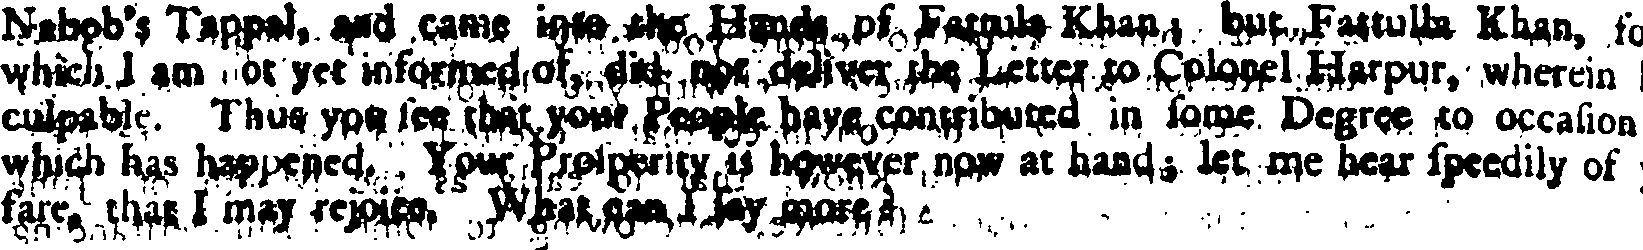 Nabob's Tappal, and came into the Hands of Fattula Khan; but Fattulla Khan, fo
which I am not yet informed of, did not deliver the Letter to Colonel Harpur, wherein
culpable. Thus you ſee that your People have contributed in ſome Degree to occaſion
which has happened. Your Proſperity is however now at hand; let me hear ſpeedily of
fare, that I may rejoice. What can I ſay more?